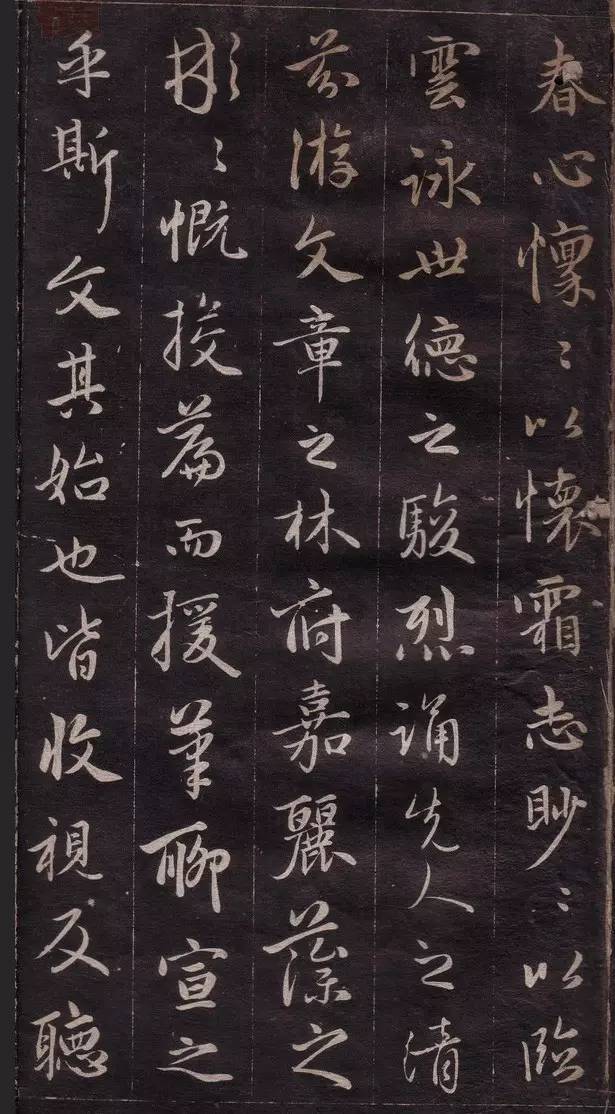 春心懍〻以懷霜志眇〻以臨
雲詠世德之駿烈誦先人之清
芬游文章之林府嘉麗藻之
彬〻慨投篇而援筆聊宣之
乎斯文其始也皆收視反聽